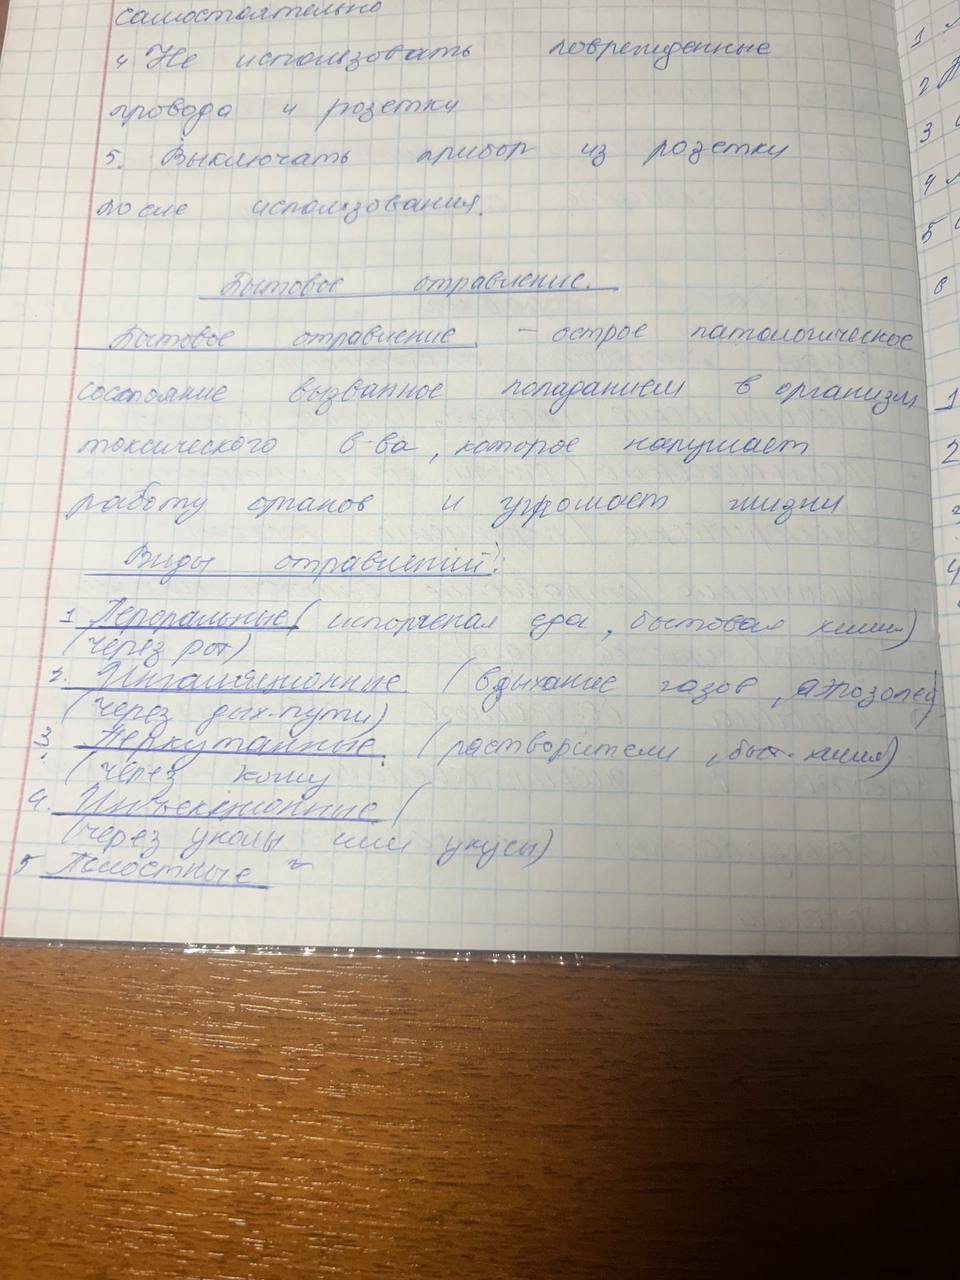 самостоятельно
4 Не использовать поврежденные
провода и розетки
5. Выключать прибор из розетки
после использования.
Бытовое отравление.
Бытовое отравление - острое патологическое
состояние вызванное попаданием в организм
токсического в-ва, которое нарушает
работу органов и угрожает жизни
Виды отравлений:
1 Пероральные (испорченая еда, бытовая химия)
(через рот)
2. Ингаляционные (вдыхание газов, аэрозолей)
(через дых-пути)
3. Перкутанные. (растворители, быт. химия)
(через кожу
4. Инъекционные (
(через уколы или укусы)
5 Полостные
1
2
3
4
5
6
1
2
3
4